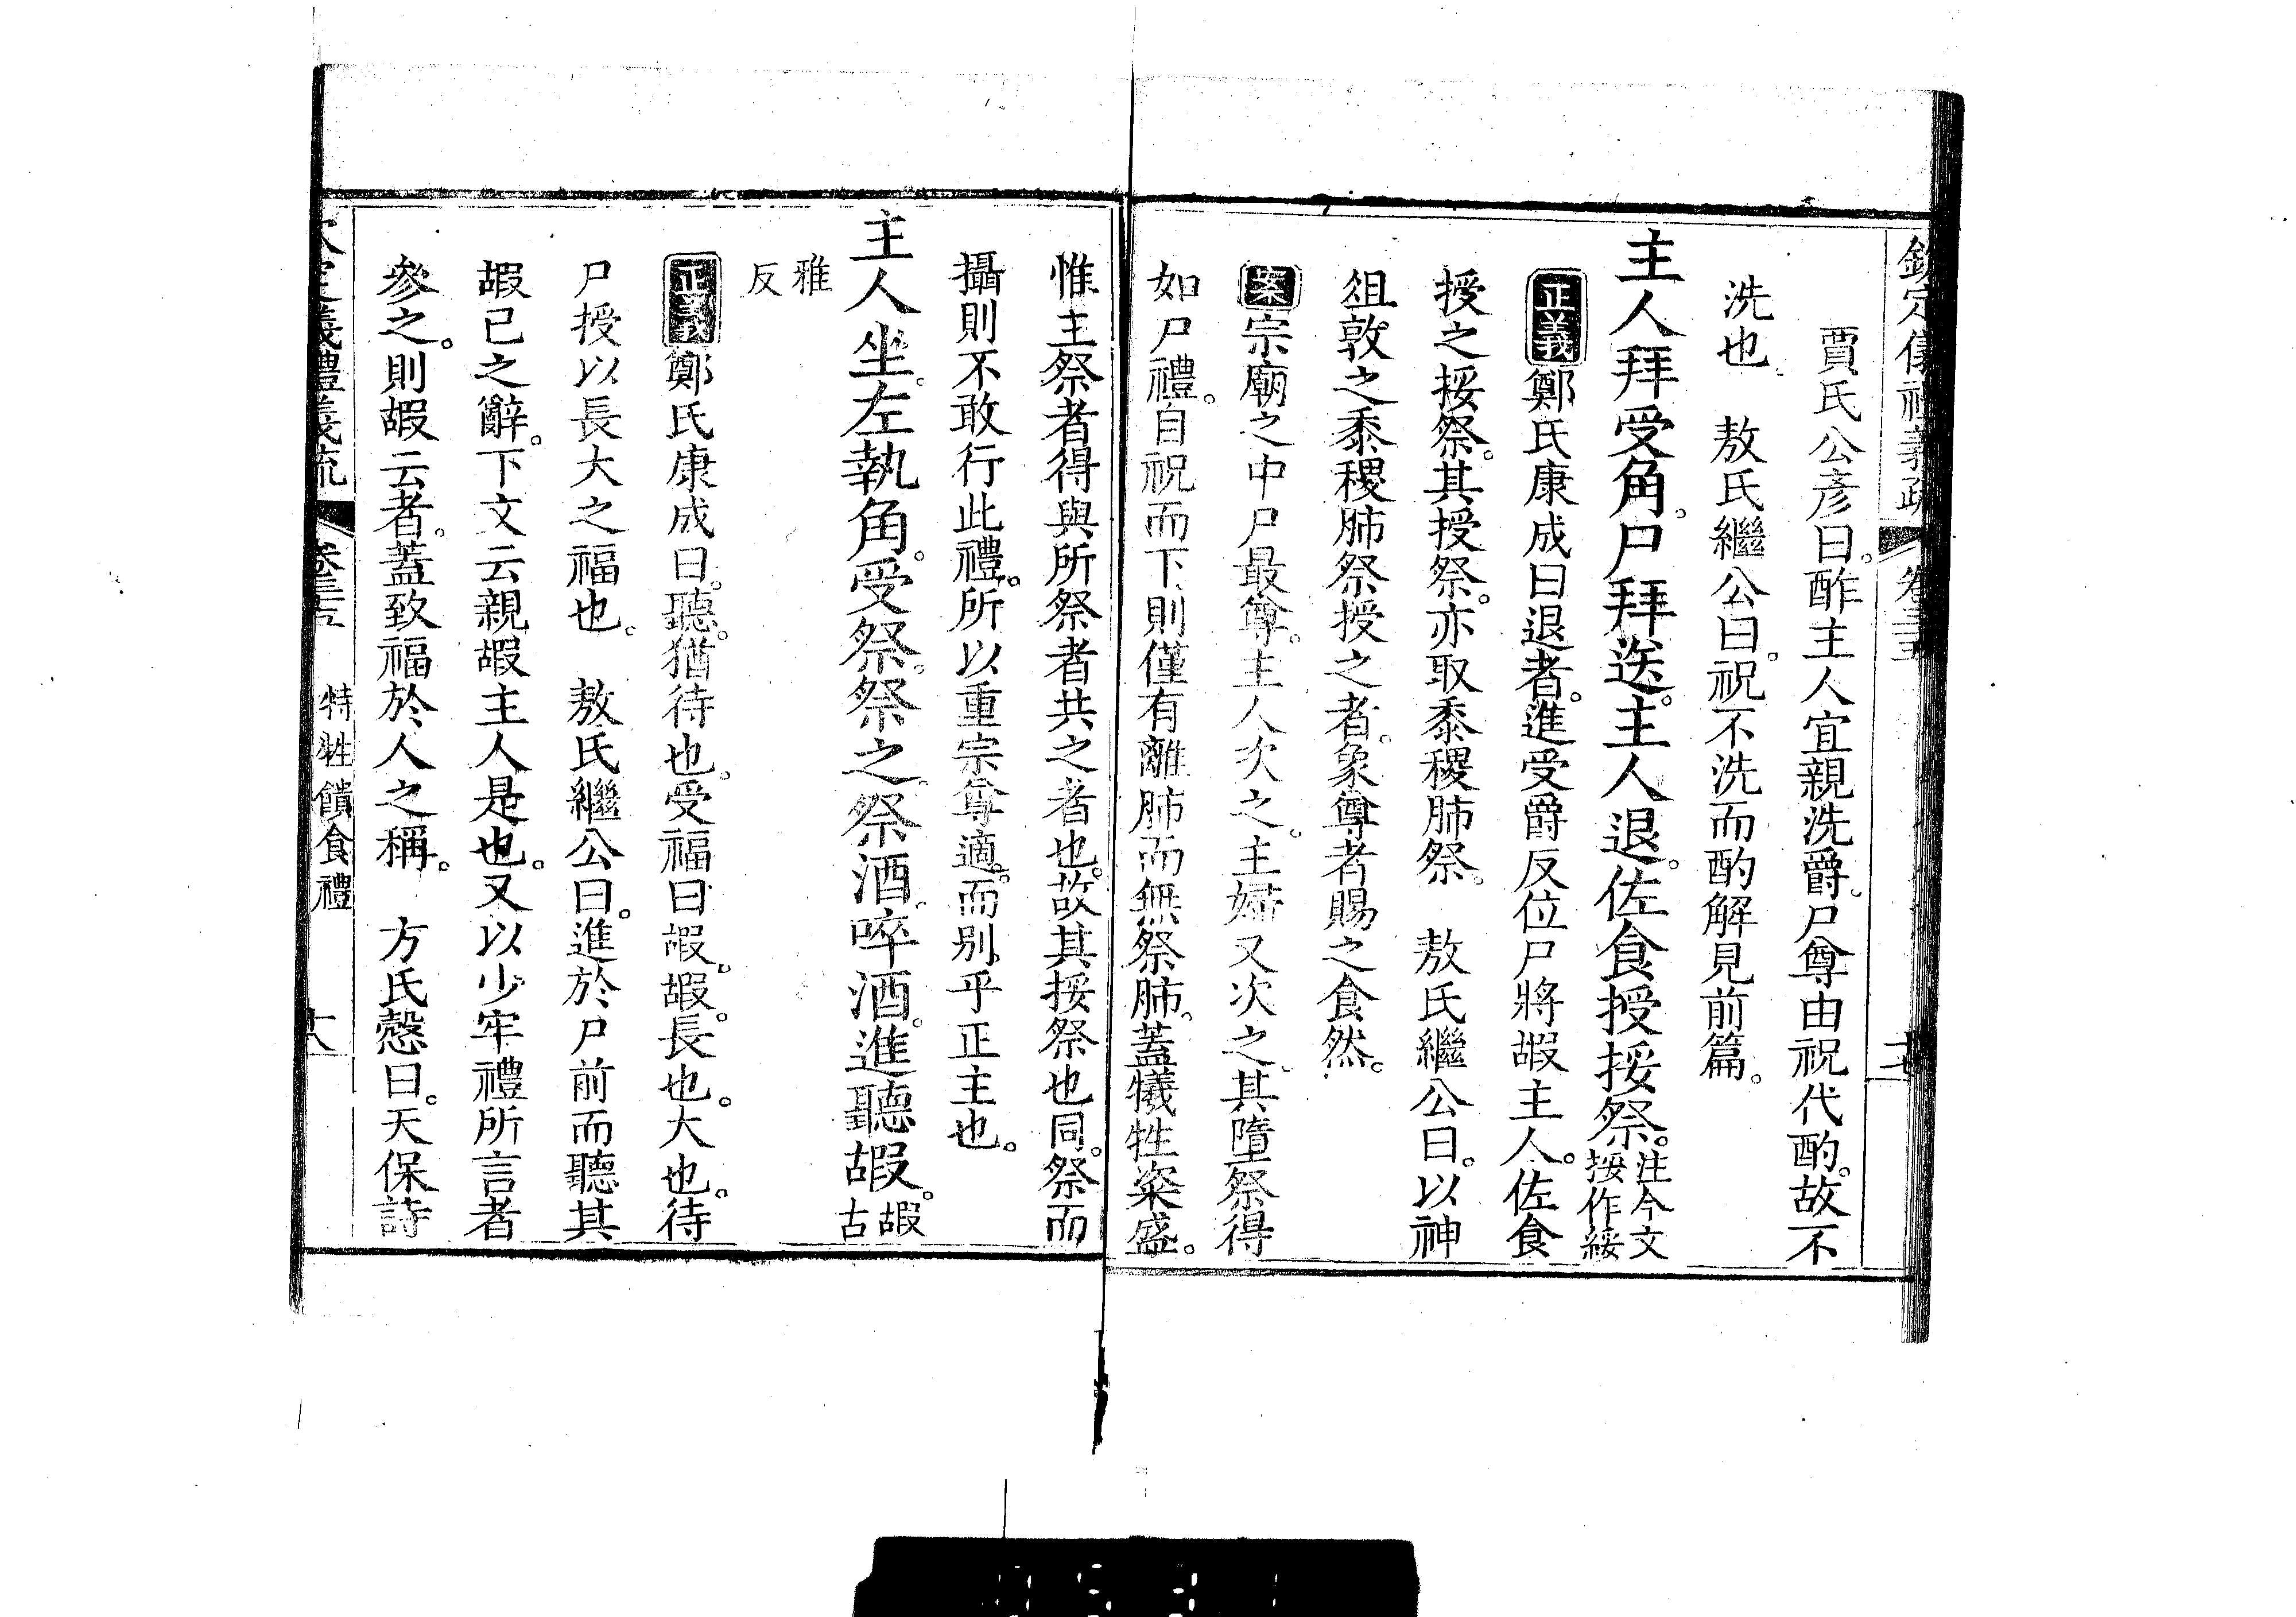 欽定儀禮義疏 卷三十五
賈氏公彥曰。酢主人宜親洗爵。尸尊由祝代酌。故不
洗也。 敖氏繼公曰。祝不洗而酌解見前篇。
主人拜受角。尸拜送。主人退。佐食授挼祭。注今文挼作綏
正義鄭氏康成曰退者。進受爵反位尸將嘏主人。佐食
授之挼祭。其授祭。亦取黍稷肺祭。 敖氏繼公曰。以神
俎敦之黍稷肺祭授之者。象尊者賜之食然。
案宗廟之中尸最尊。主人次之。主婦又次之。其墮祭得
如尸禮。自祝而下則僅有離肺而無祭肺。蓋犧牲粢盛。
惟主祭者得與所祭者共之者也。故其挼祭也同。祭而
攝則不敢行此禮。所以重宗尊適。而别乎正主也。
主人坐。左執角。受祭。祭之。祭酒。啐酒。進聽嘏。嘏古
雅反
正義鄭氏康成曰。聽。猶待也。受福曰嘏。嘏。長也。大也。待
尸授以長大之福也。 敖氏繼公曰。進於尸前而聽其
嘏已之辭。下文云親嘏主人是也。又以少牢禮所言者
參之。則嘏云者。蓋致福於人之稱。 方氏慤曰。天保詩
義禮義疏 卷三十五 特牲饋食禮 十八